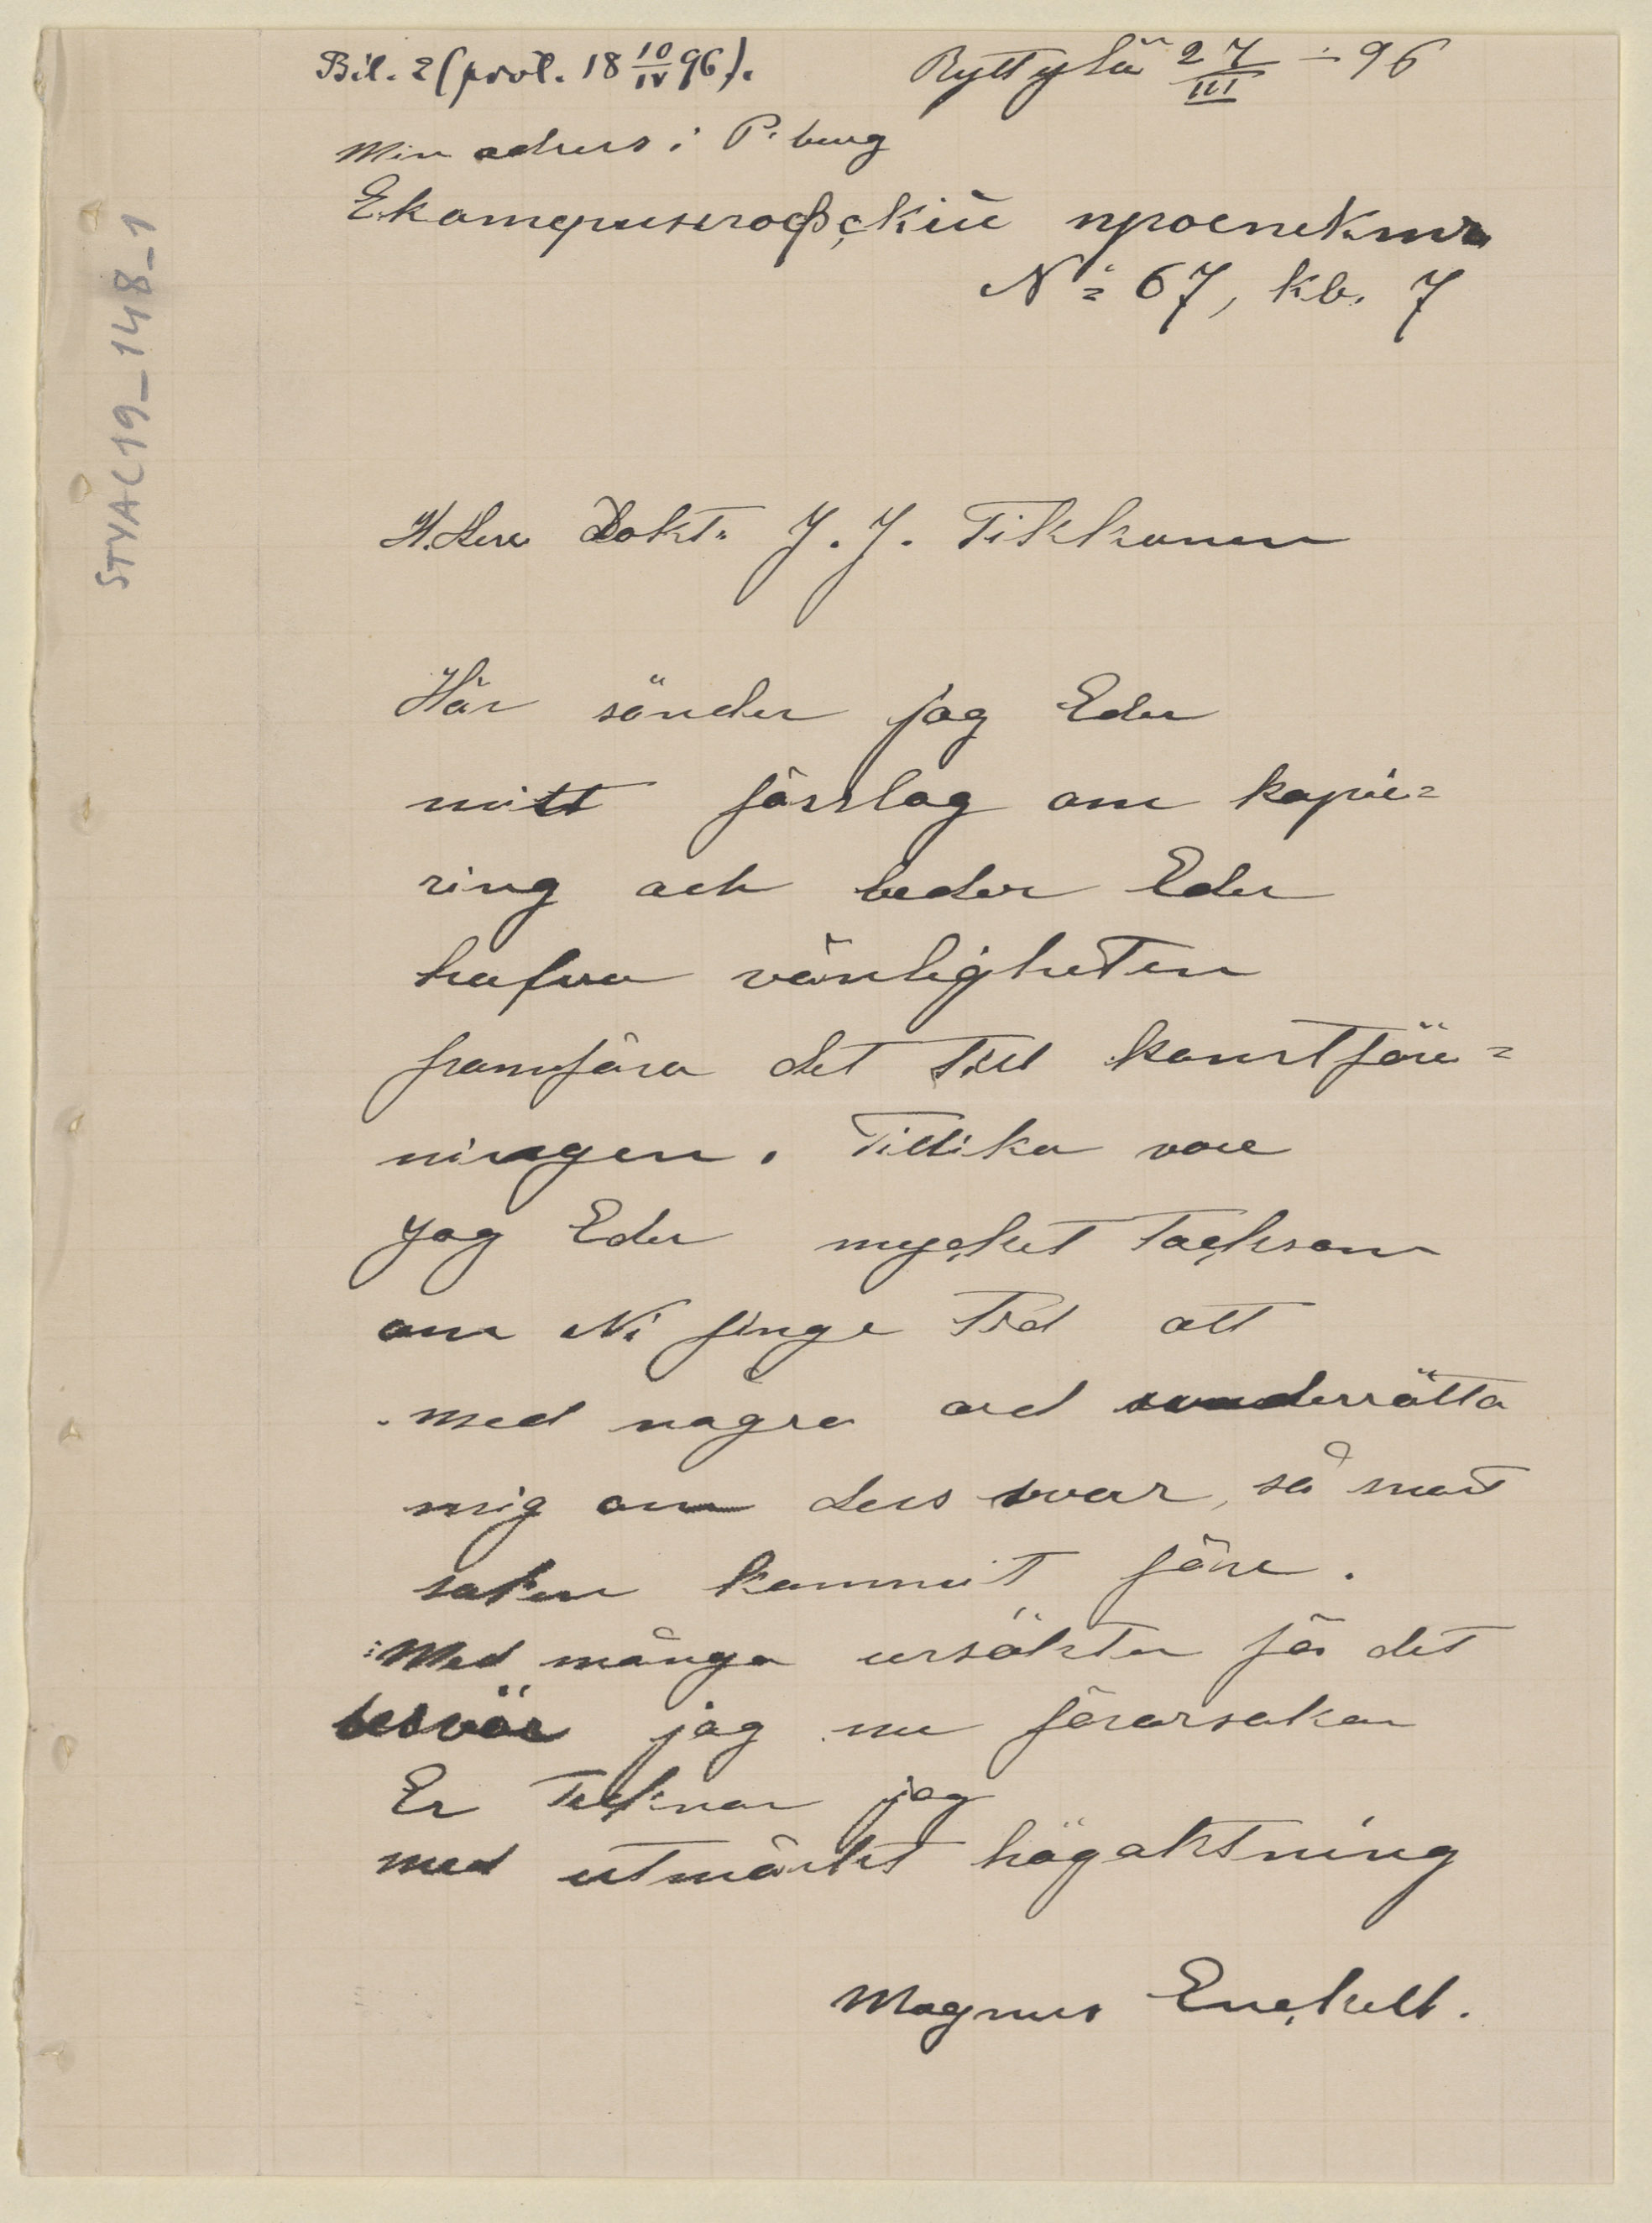 Bil. 2 (prot. 18 10/IV 96).
Ryttylä 27/III - 96
Min adress i P.burg
Екатерингофскій проспектъ
№ 67, кв. 7
STYA C19_148_1
H. Herr Dokt. J. J. Tikkanen
Här sänder jag Eder
mitt förslag om kopie=
ring och beder Eder
hafva vänligheten
framföra det till konstföre=
ningen. Tillika vore
jag Eder mycket tacksam
om Ni finge tid att
med några ord underrätta
mig om dess svar, så snart
saken kommit före.
Med många ursäkter för det
besvär jag nu förorsakar
Er tecknar jag
med utmärkt högaktning
Magnus Enckell.